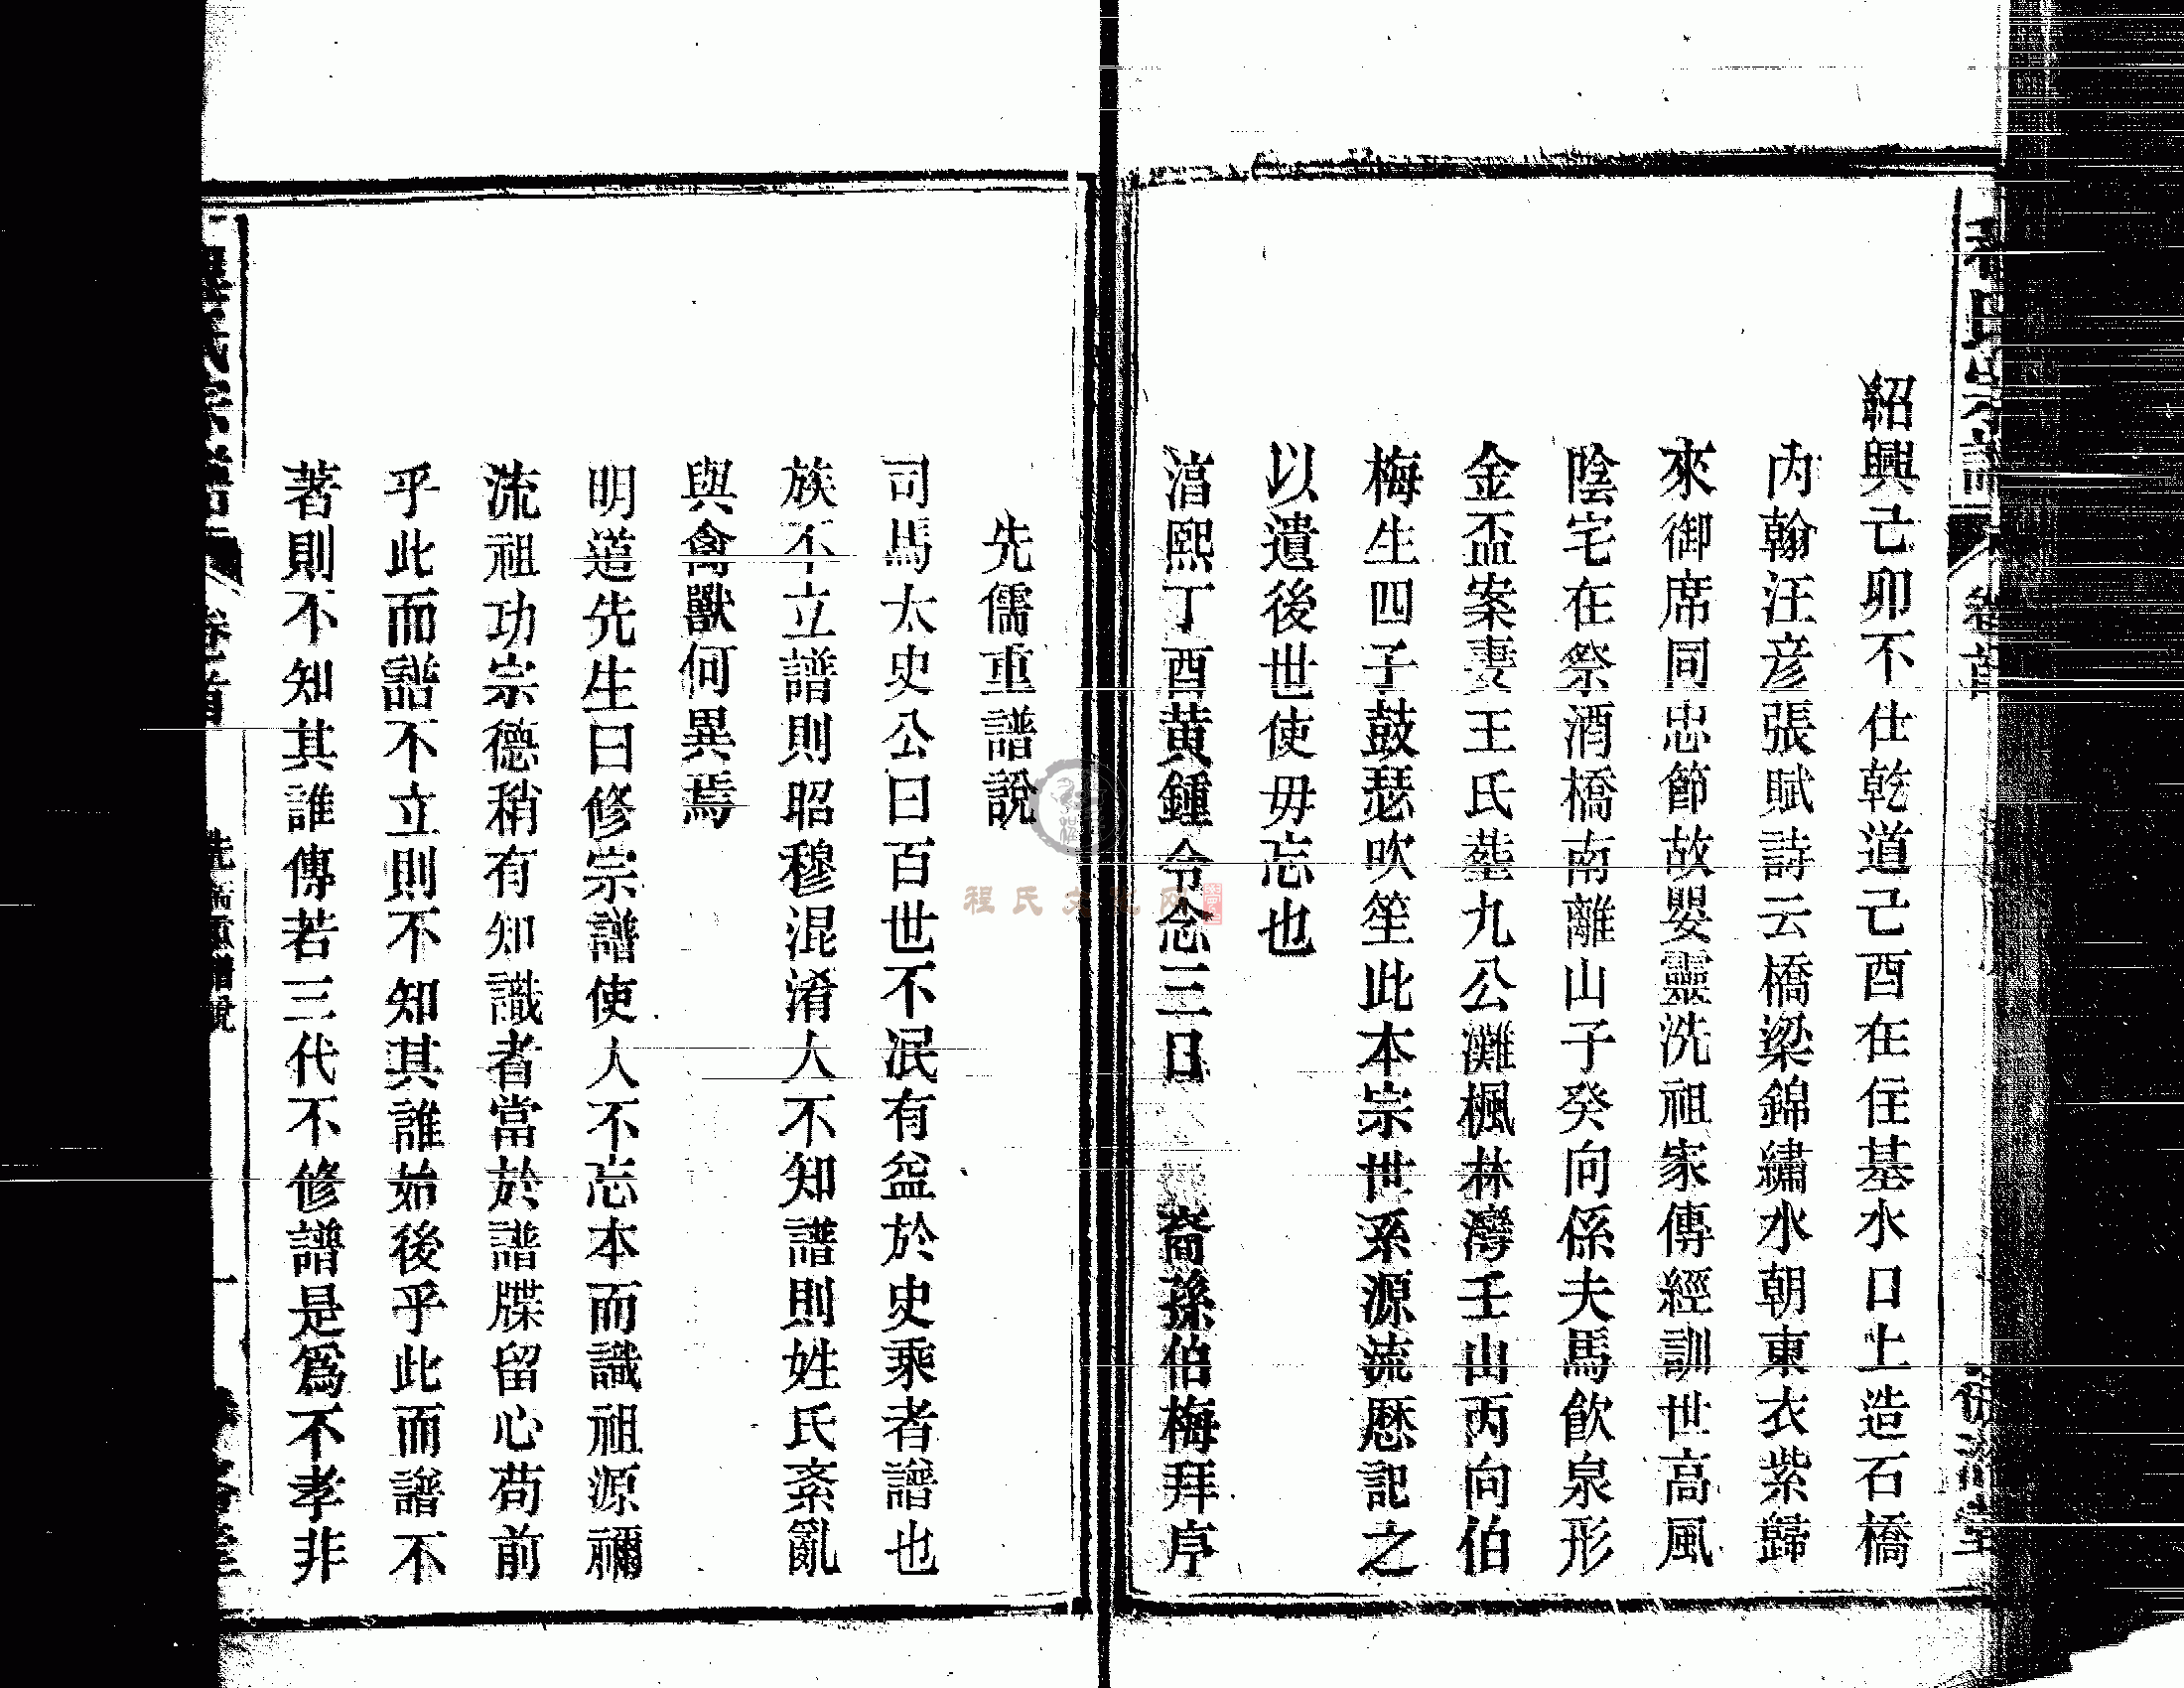 紹興己卯不仕乾道己酉在任墓水口上造石橋
內翰汪彦張賦詩云橋梁錦繡水朝東衣紫歸
來御席同忠節故嬰靈洗祖家傳經訓世高風
陰宅在祭酒橋南離山子癸向係夫馬飲泉形
金盃案妻王氏塟九公灘楓林灣壬山丙向伯
梅生四子鼓瑟吹笙此本宗世系源流歷記之
以遺後世使毋忘也
淳熙丁酉黃鍾令念三日 裔孫伯梅拜序
先儒重譜說
司馬太史公曰百世不泯有益於史乘者譜也
族不立譜則昭穆混淆人不知譜則姓氏紊亂
與禽獸何異焉
明道先生曰修宗譜使人不忘本而識祖源禰
流祖功宗德稍有知識者當於譜牒留心苟前
乎此而譜不立則不知其誰始後乎此而譜不
著則不知其誰傳若三代不修譜是爲不孝非
程氏宗譜 卷首 先儒重譜說 一
程氏文化网